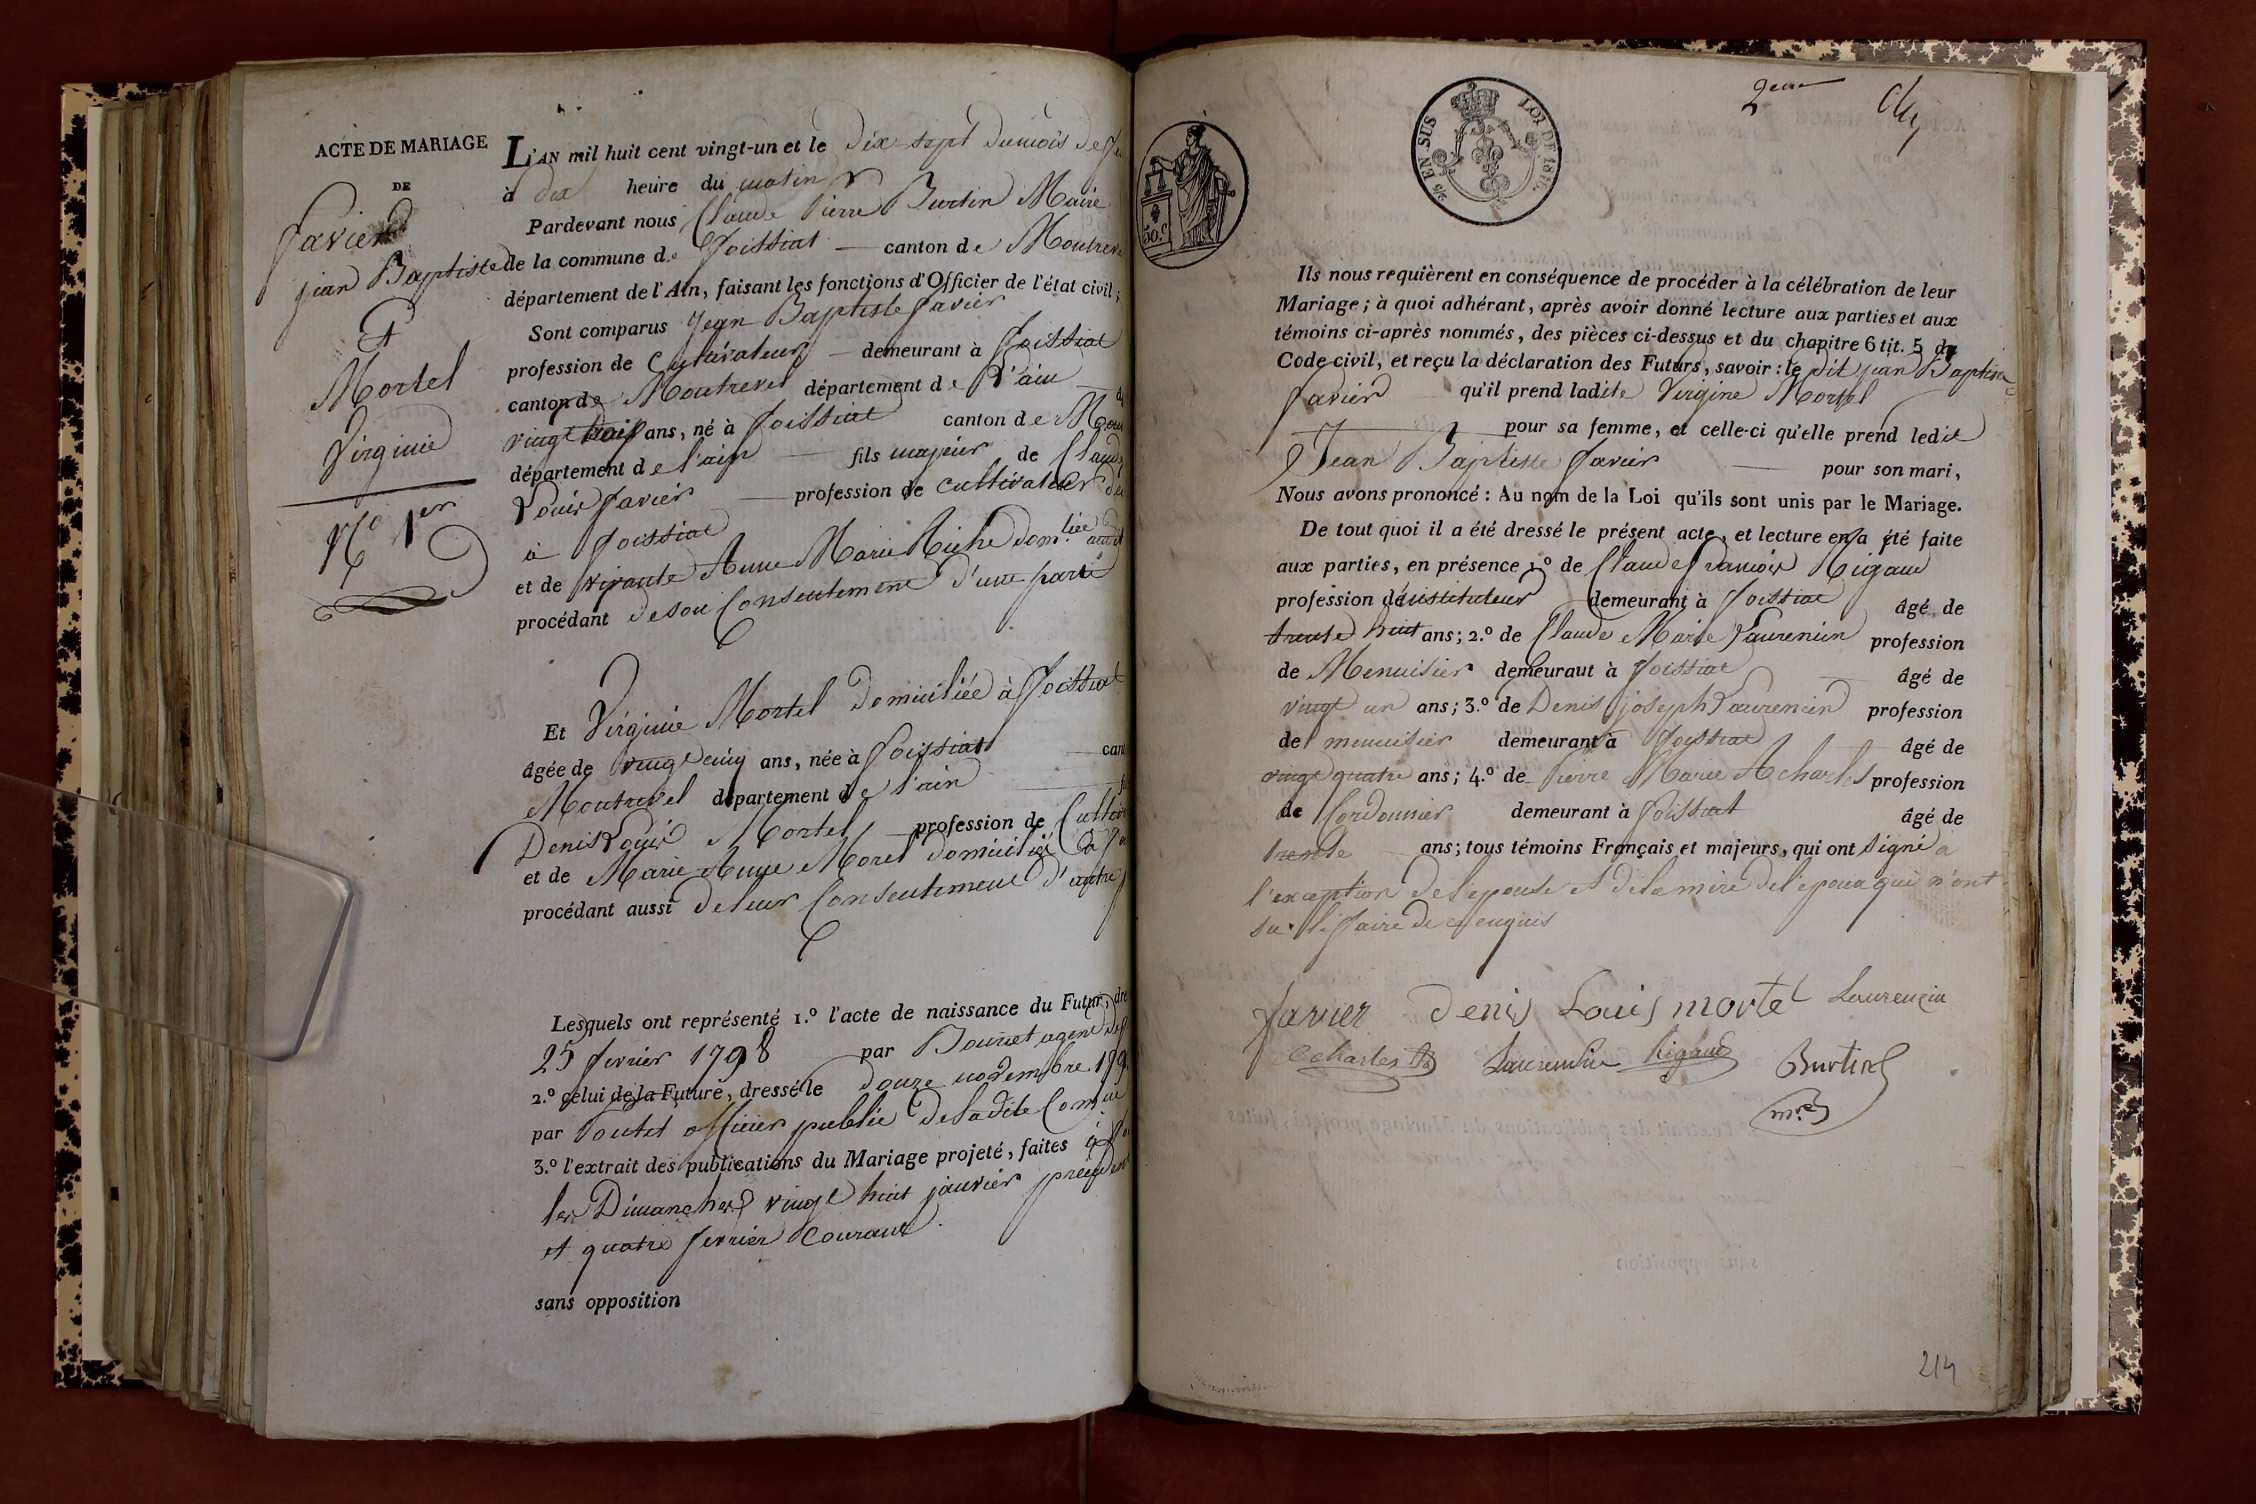 ACTE DE MARIAGE
DE
Favier
jean Baptiste
Et
Mortel
Virginie
N.º 1er
L'AN mil huit cent vingt-un et le dix-sept du mois de fe
à dix heure du matin
Pardevant nous Claude Pierre Burtin Maire
de la commune de foissiat canton de Montreve
département de l'Ain, faisant les fonctions d'Officier de l'état civil;
Sont comparus Jean Baptiste favier
profession de Cultivateur demeurant à foissiat
canton de Montrevel département de l'ain
vingt trois ans, né à foissiat canton de Mon
département de l'ain fils majeur de Claude
Louis favier profession de cultivateur
à foissiat
et de vivante Anne Marie Riche dom.liée
procédant de son Consentement d'une part
Et Virginie Mortel domiciliée à foissiat
âgée de vingt cinq ans, née à foissiat can
Montrevel département de l'ain
Denis Louis Mortel profession de Cultiv
et de Marie Anne Morel domiciliés à fo
procédant aussi de leur Consentement d'autre p
Lesquels ont représenté 1.º l'acte de naissance du Futur, dre
25 fevrier 1798 par Bouvet agent
2.º celui de la Future, dressé le douze novembre 179
par Poutet officier public de la dite Com.ne
3.º l'extrait des publications du Mariage projeté, faites à fo
les Dimanches vingt huit janvier précédent
et quatre fevrier Courant.
sans opposition
2eme
25 EN SUS
LOI DE 1816.
50.C
Ils nous requièrent en conséquence de procéder à la célébration de leur
Mariage; à quoi adhérant, après avoir donné lecture aux parties et aux
témoins ci-après nommés, des pièces ci-dessus et du chapitre 6 tit. 5 du
Code civil, et reçu la déclaration des Futurs, savoir: le dit jean Baptiste
favier qu'il prend ladite Virgine Mortel
pour sa femme, et celle-ci qu'elle prend ledit
Jean Baptiste favier pour son mari,
Nous avons prononcé: Au nom de la Loi qu'ils sont unis par le Mariage.
De tout quoi il a été dressé le présent acte, et lecture en a été faite
aux parties, en présence 1.º de Claude françois Rigaud
profession d'instituteur demeurant à foissiat âgé de
trente huit ans; 2.º de Claude Marie Laurencin profession
de Menuisier demeurant à foissiat âgé de
vingt un ans; 3.º de Denis joseph Laurencin profession
de menuisier demeurant à foissiat âgé de
vingt quatre ans; 4.º de Pierre Marie Acharles profession
de Cordonnier demeurant à foissiat âgé de
trente ans; tous témoins Français et majeurs, qui ont signé a
l'exception de l'epouse et de la mère de l'epoux qui n'ont
su le faire de ce enquis
favier Denis Louis mortel Laurençin
acharles Laurencin Rigaud Burtin
m.re
214